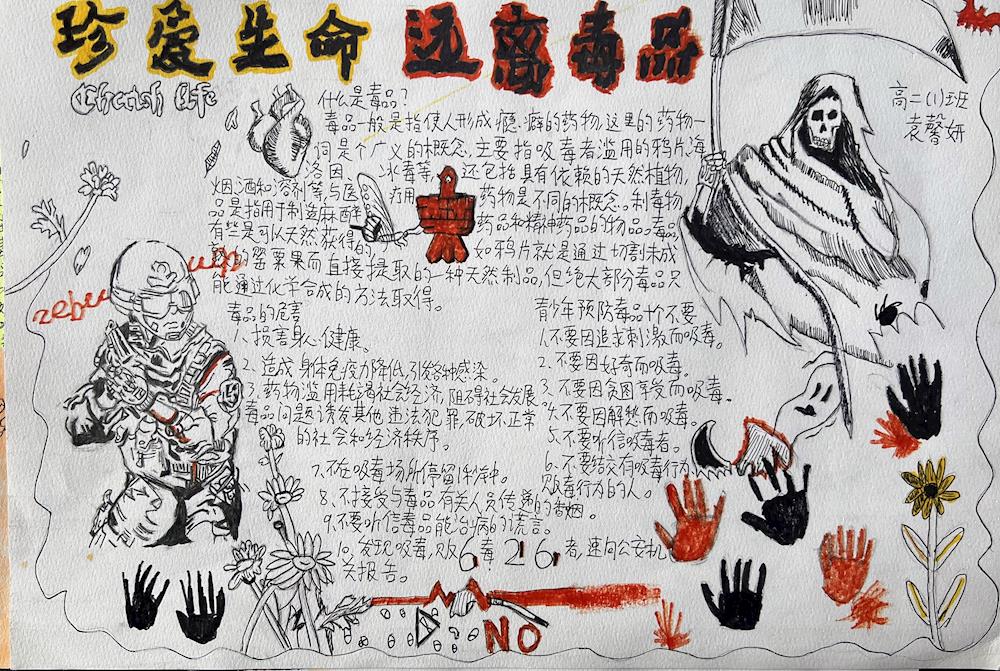 珍爱生命 远离毒品
Cherish life
高二(1)班
袁馨妍
什么是毒品?
毒品一般是指使人形成瘾癖的药物,这里的药物一
词是个广义的概念,主要指吸毒者滥用的鸦片海
洛因、冰毒等,还包括具有依赖的天然植物,
烟酒和溶剂等,与医疗用药物是不同的概念。制毒物
品是指用于制造麻醉药品和精神药品的物品。毒品
有些是可以天然获得的,如鸦片就是通过切割未成
的罂粟果而直接提取的一种天然制品,但绝大部份毒品只
能通过化学合成的方法取得。
毒品的危害
1、损害身心健康。
2、造成身体免疫力降低,引发各种感染。
3、药物滥用耗渴社会经济,阻碍社会发展
毒品问题诱发其他违法犯罪,破坏正常
的社会和经济秩序。
青少年预防毒品十个不要
1.不要因追求刺激而吸毒。
2.不要因好奇而吸毒。
3.不要因贪图享受而吸毒。
4.不要因解愁而吸毒。
5.不要听信吸毒者。
6.不要结交有吸毒行为、
贩毒行为的人。
7、不在吸毒场所停留休作。
8、不接受与毒品有关人员传递的香烟。
9.不要听信毒品能治病的谎言。
10、发现吸毒,贩毒者,速向公安机
关报告。
626
NO